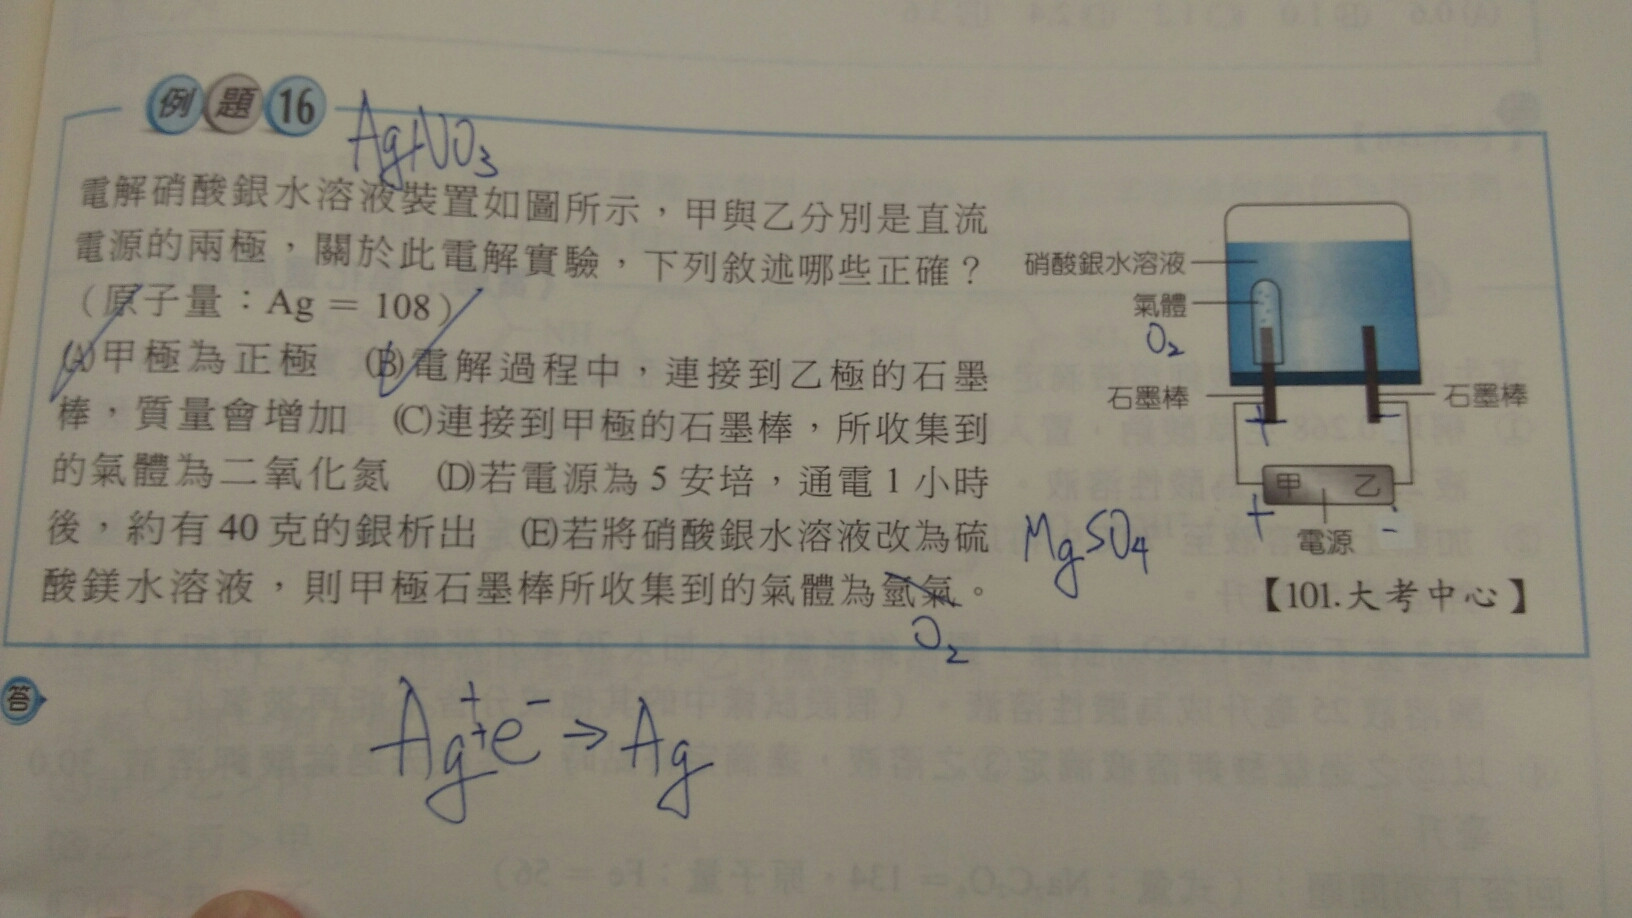 例題16
AgNO3
電解硝酸銀水溶液裝置如圖所示，甲與乙分別是直流
電源的兩極，關於此電解實驗，下列敘述哪些正確？
（原子量：Ag = 108）
(A)甲極為正極　(B)電解過程中，連接到乙極的石墨
棒，質量會增加　(C)連接到甲極的石墨棒，所收集到
的氣體為二氧化氮　(D)若電源為 5 安培，通電 1 小時
後，約有 40 克的銀析出　(E)若將硝酸銀水溶液改為硫
酸鎂水溶液，則甲極石墨棒所收集到的氣體為氫氣。
O2
MgSO4
硝酸銀水溶液
氣體
O2
石墨棒
石墨棒
+ −
甲 乙
+ −
電源
【101.大考中心】
答
Ag+ + e− → Ag